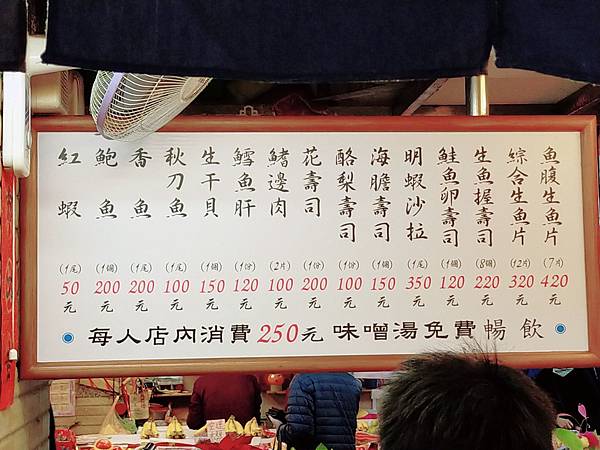 魚腹生魚片 (7片) 420元
綜合生魚片 (12片) 320元
生魚握壽司 (8個) 220元
鮭魚卵壽司 (1個) 120元
明蝦沙拉 (1尾) 350元
海膽壽司 (1個) 150元
酪梨壽司 (1份) 100元
花壽司 (1份) 200元
鰭邊肉 (2片) 100元
鱈魚肝 (1份) 120元
生干貝 (1個) 150元
秋刀魚 (1尾) 100元
香魚 (1尾) 200元
鮑魚 (1個) 200元
紅蝦 (1尾) 50元
每人店內消費250元 味噌湯免費暢飲